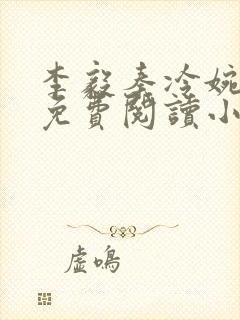 李毅秦冷婉
免費閱讀小
虛鳴